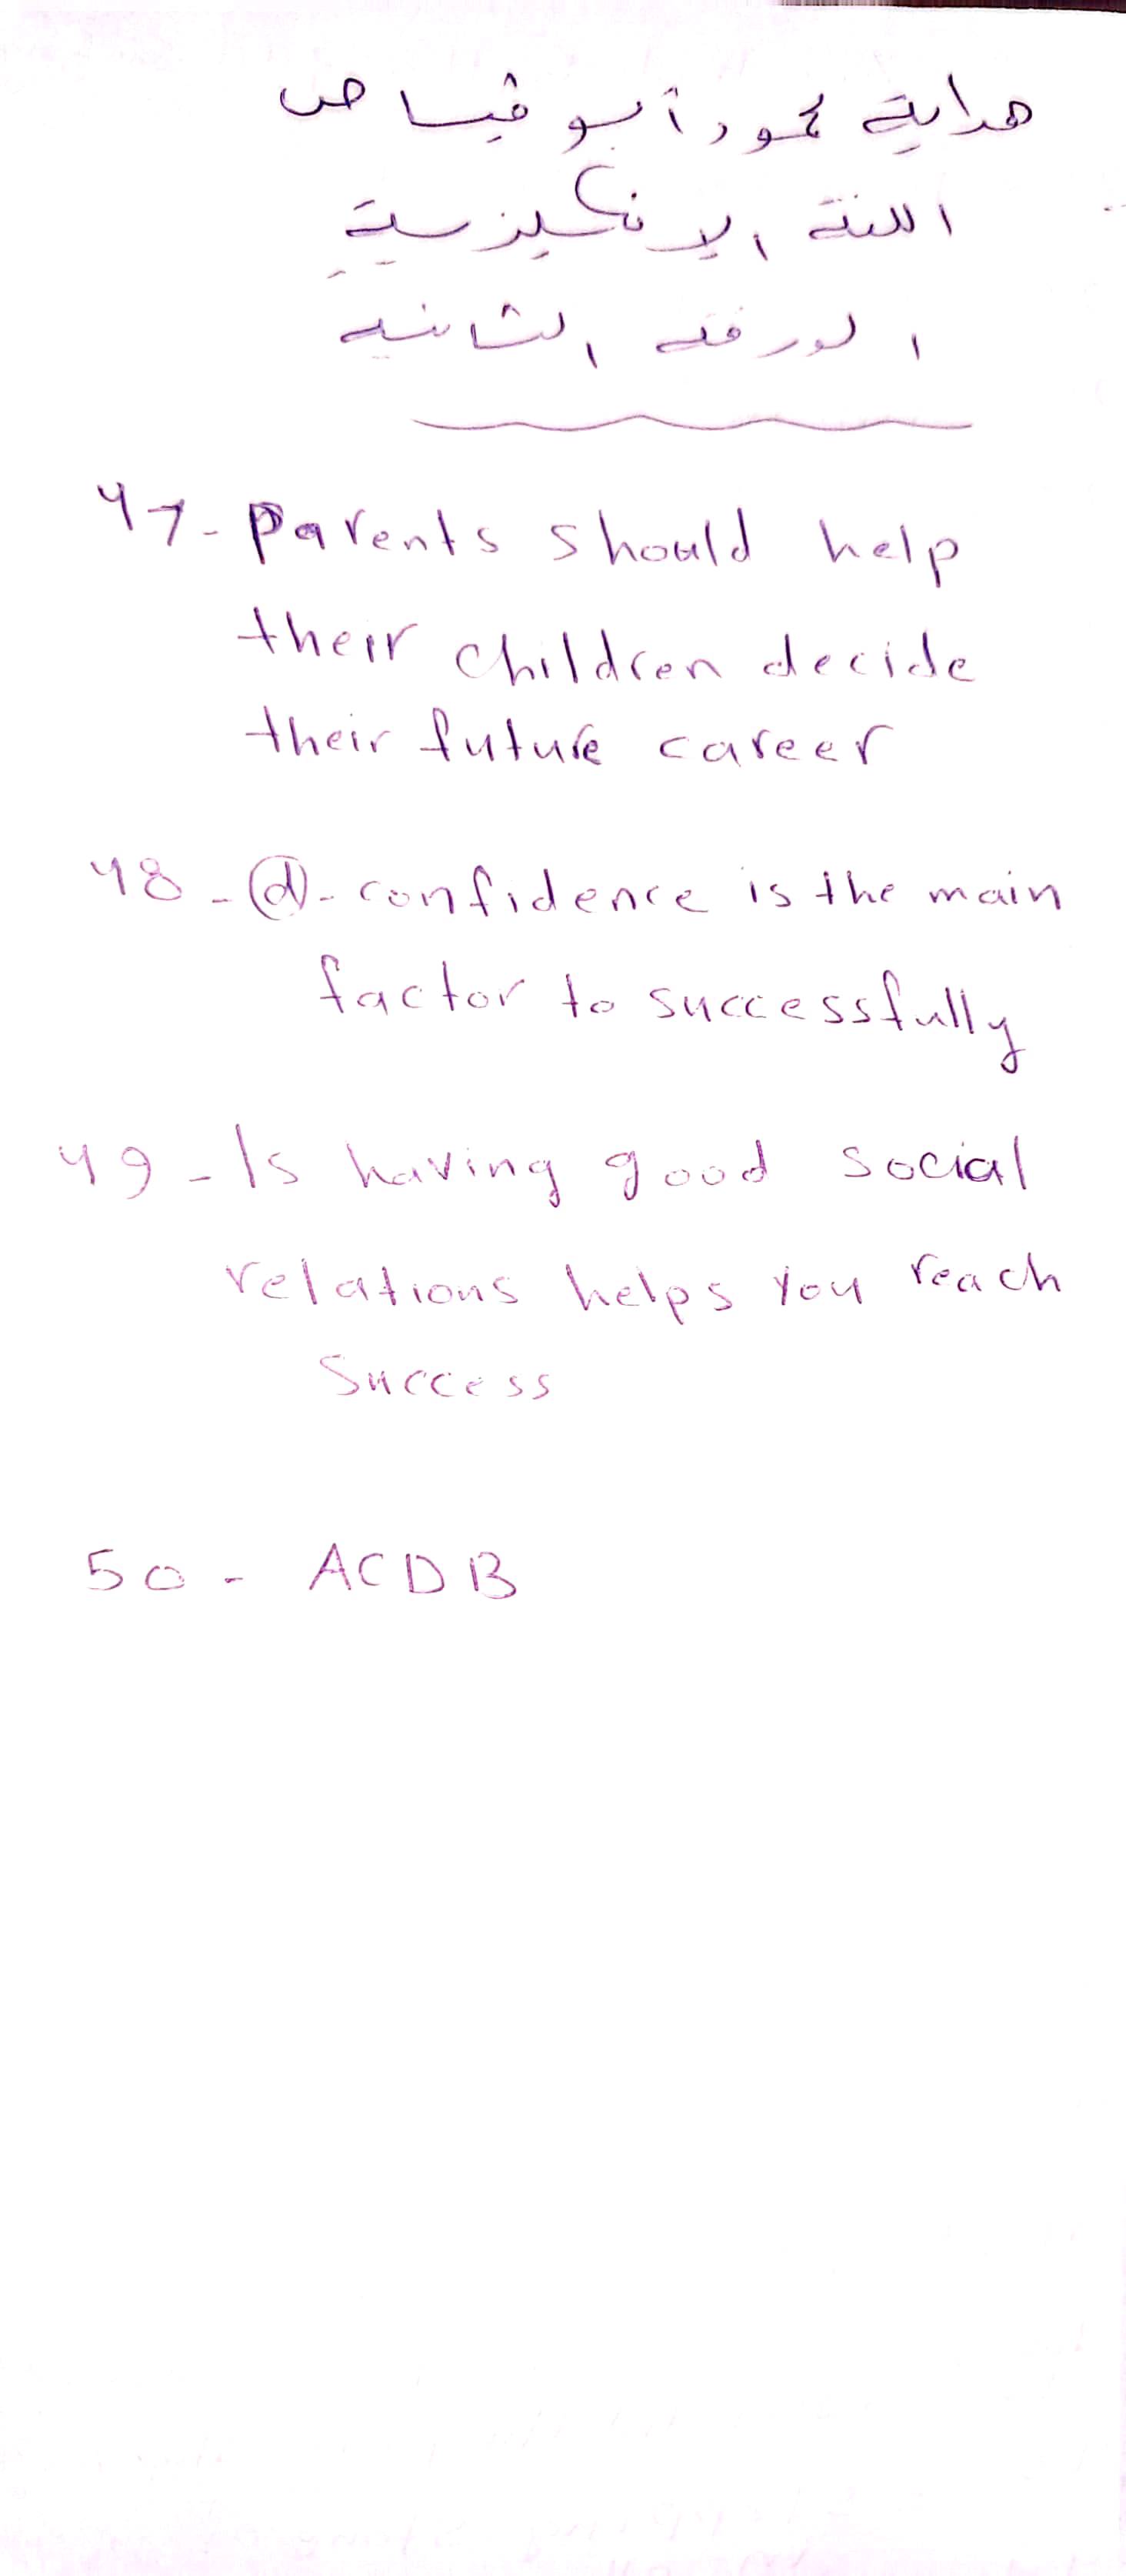 هداية محمود أبو قياص
اللغة الإنكليزية
الورقة الثانية
47- Parents should help
their children decide
their future career
48- d- confidence is the main
factor to successfully
49- Is having good social
relations helps you reach
success
50- ACDB